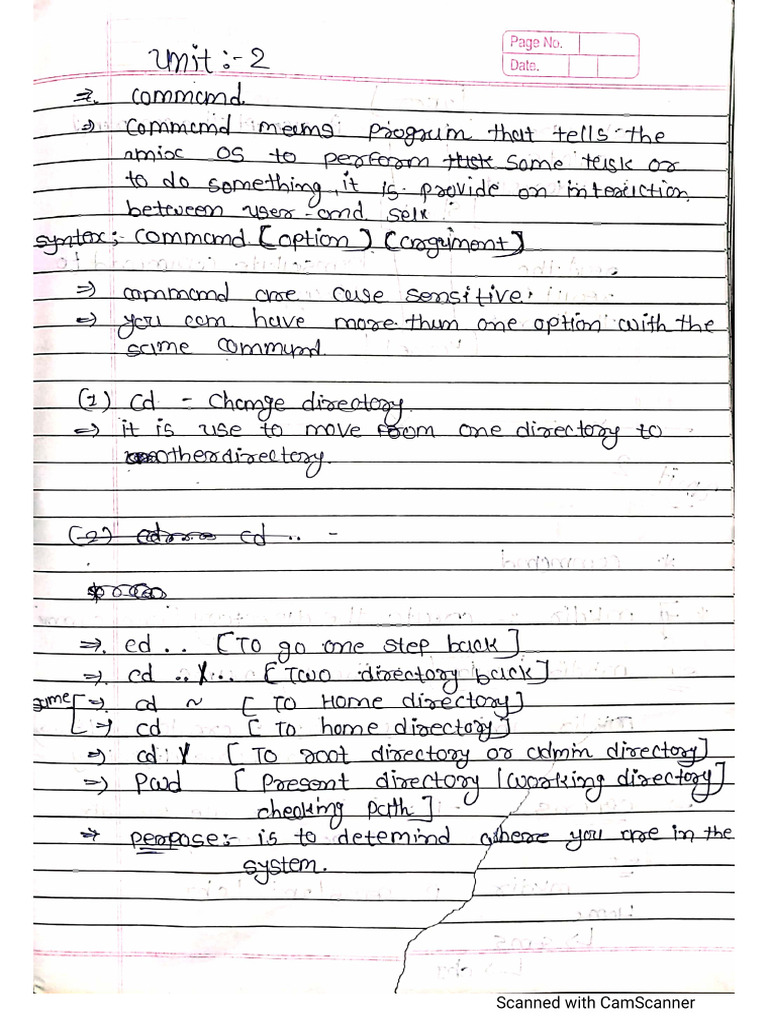 Unit :- 2
Page No.
Date.
⇒ command.
⇒ Command means program that tells the
unix OS to perform some task or
to do something, it is provide an interaction
between user and
syntax:- command [option] [argument]
⇒ command are case sensitive.
⇒ you can have more than one option with the
same command.
(1) cd - Change directory.
⇒ it is use to move from one directory to
other directory.
(2) cd .. -
⇒ cd .. [To go one step back]
⇒ cd ../.. [Two directory back]
same ⇒ cd ~ [To Home directory]
⇒ cd [To home directory]
⇒ cd / [To root directory or admin directory]
⇒ Pwd [Present directory / working directory
checking path]
⇒ perpose:- is to detemind where you are in the
system.
Scanned with CamScanner